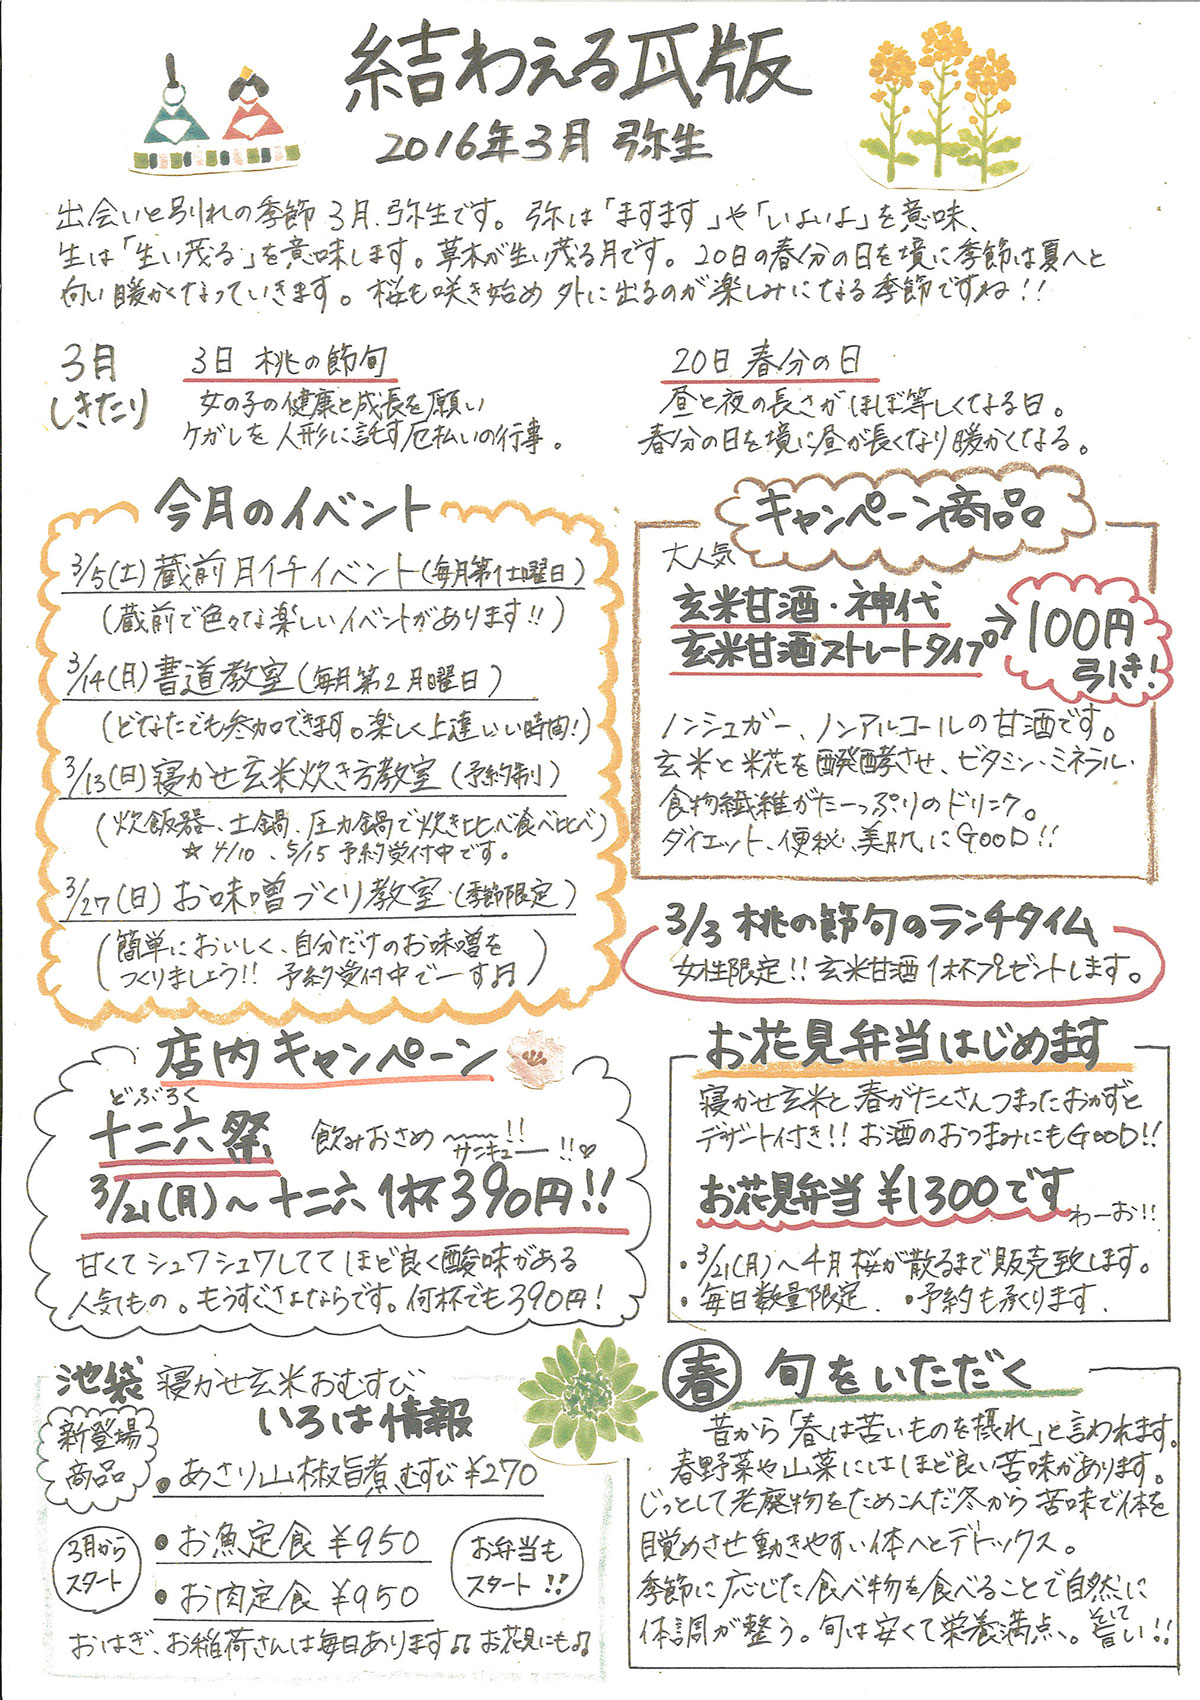 結わえる瓦版
2016年3月 弥生
出会いと別れの季節 3月、弥生です。弥は「ますます」や「いよいよ」を意味、
生は「生い茂る」を意味します。草木が生い茂る月です。20日の春分の日を境に季節は夏へと
向い暖かくなっていきます。桜も咲き始め 外に出るのが楽しみになる季節ですね!!
3月
しきたり
3日 桃の節句
女の子の健康と成長を願い
ケガレを人形に託す厄払いの行事。
20日 春分の日
昼と夜の長さがほぼ等しくなる日。
春分の日を境に昼が長くなり暖かくなる。
今月のイベント
3/5(土)蔵前月イチイベント(毎月第1土曜日)
(蔵前で色々な楽しいイベントがあります!!)
3/14(月)書道教室(毎月第2月曜日)
(どなたでも参加できます。楽しく上達いい時間!)
3/13(日)寝かせ玄米炊き方教室(予約制)
(炊飯器、土鍋、圧力鍋で炊き比べ食べ比べ)
☆4/10、5/15 予約受付中です。
3/27(日)お味噌づくり教室・(季節限定)
(簡単においしく、自分だけのお味噌を
つくりましょう!! 予約受付中でーす♫)
キャンペーン商品
大人気
玄米甘酒・神代
玄米甘酒ストレートタイプ
→100円
引き!
ノンシュガー、ノンアルコールの甘酒です。
玄米と米花を醗酵させ、ビタミン・ミネラル・
食物繊維がたーっぷりのドリンク。
ダイエット、便秘、美肌にGOOD!!
3/3 桃の節句のランチタイム
女性限定!! 玄米甘酒1杯プレゼントします。
店内キャンペーン
どぶろく
十二六祭 飲みおさめ〜!!
サンキュー!!♡
3/21(月)〜十二六1杯390円!!
甘くてシュワシュワしてて ほど良く酸味がある
人気もの。もうすぐさよならです。何杯でも390円!
お花見弁当はじめます
寝かせ玄米と春がたくさんつまったおかずと
デザート付き!! お酒のおつまみにもGOOD!!
お花見弁当 ¥1300です
わーお!!
・3/21(月)〜4月桜が散るまで販売致します。
・毎日数量限定 ・予約も承ります。
池袋 寝かせ玄米おむすび
いろは情報
新登場
商品
・あさり山椒旨煮むすび ¥270
3月から
スタート
・お魚定食 ¥950
・お肉定食 ¥950
お弁当も
スタート!!
おはぎ、お稲荷さんは毎日あります♫ お花見にも♫
春 旬をいただく
昔から「春は苦いものを摂れ」と言われます。
春野菜や山菜にはほど良い苦味があります。
じっとして老廃物をためこんだ冬から苦味で体を
目覚めさせ動きやすい体へとデトックス。
季節に応じた食べ物を食べることで自然に
体調が整う。旬は安くて栄養満点。そして
旨い!!